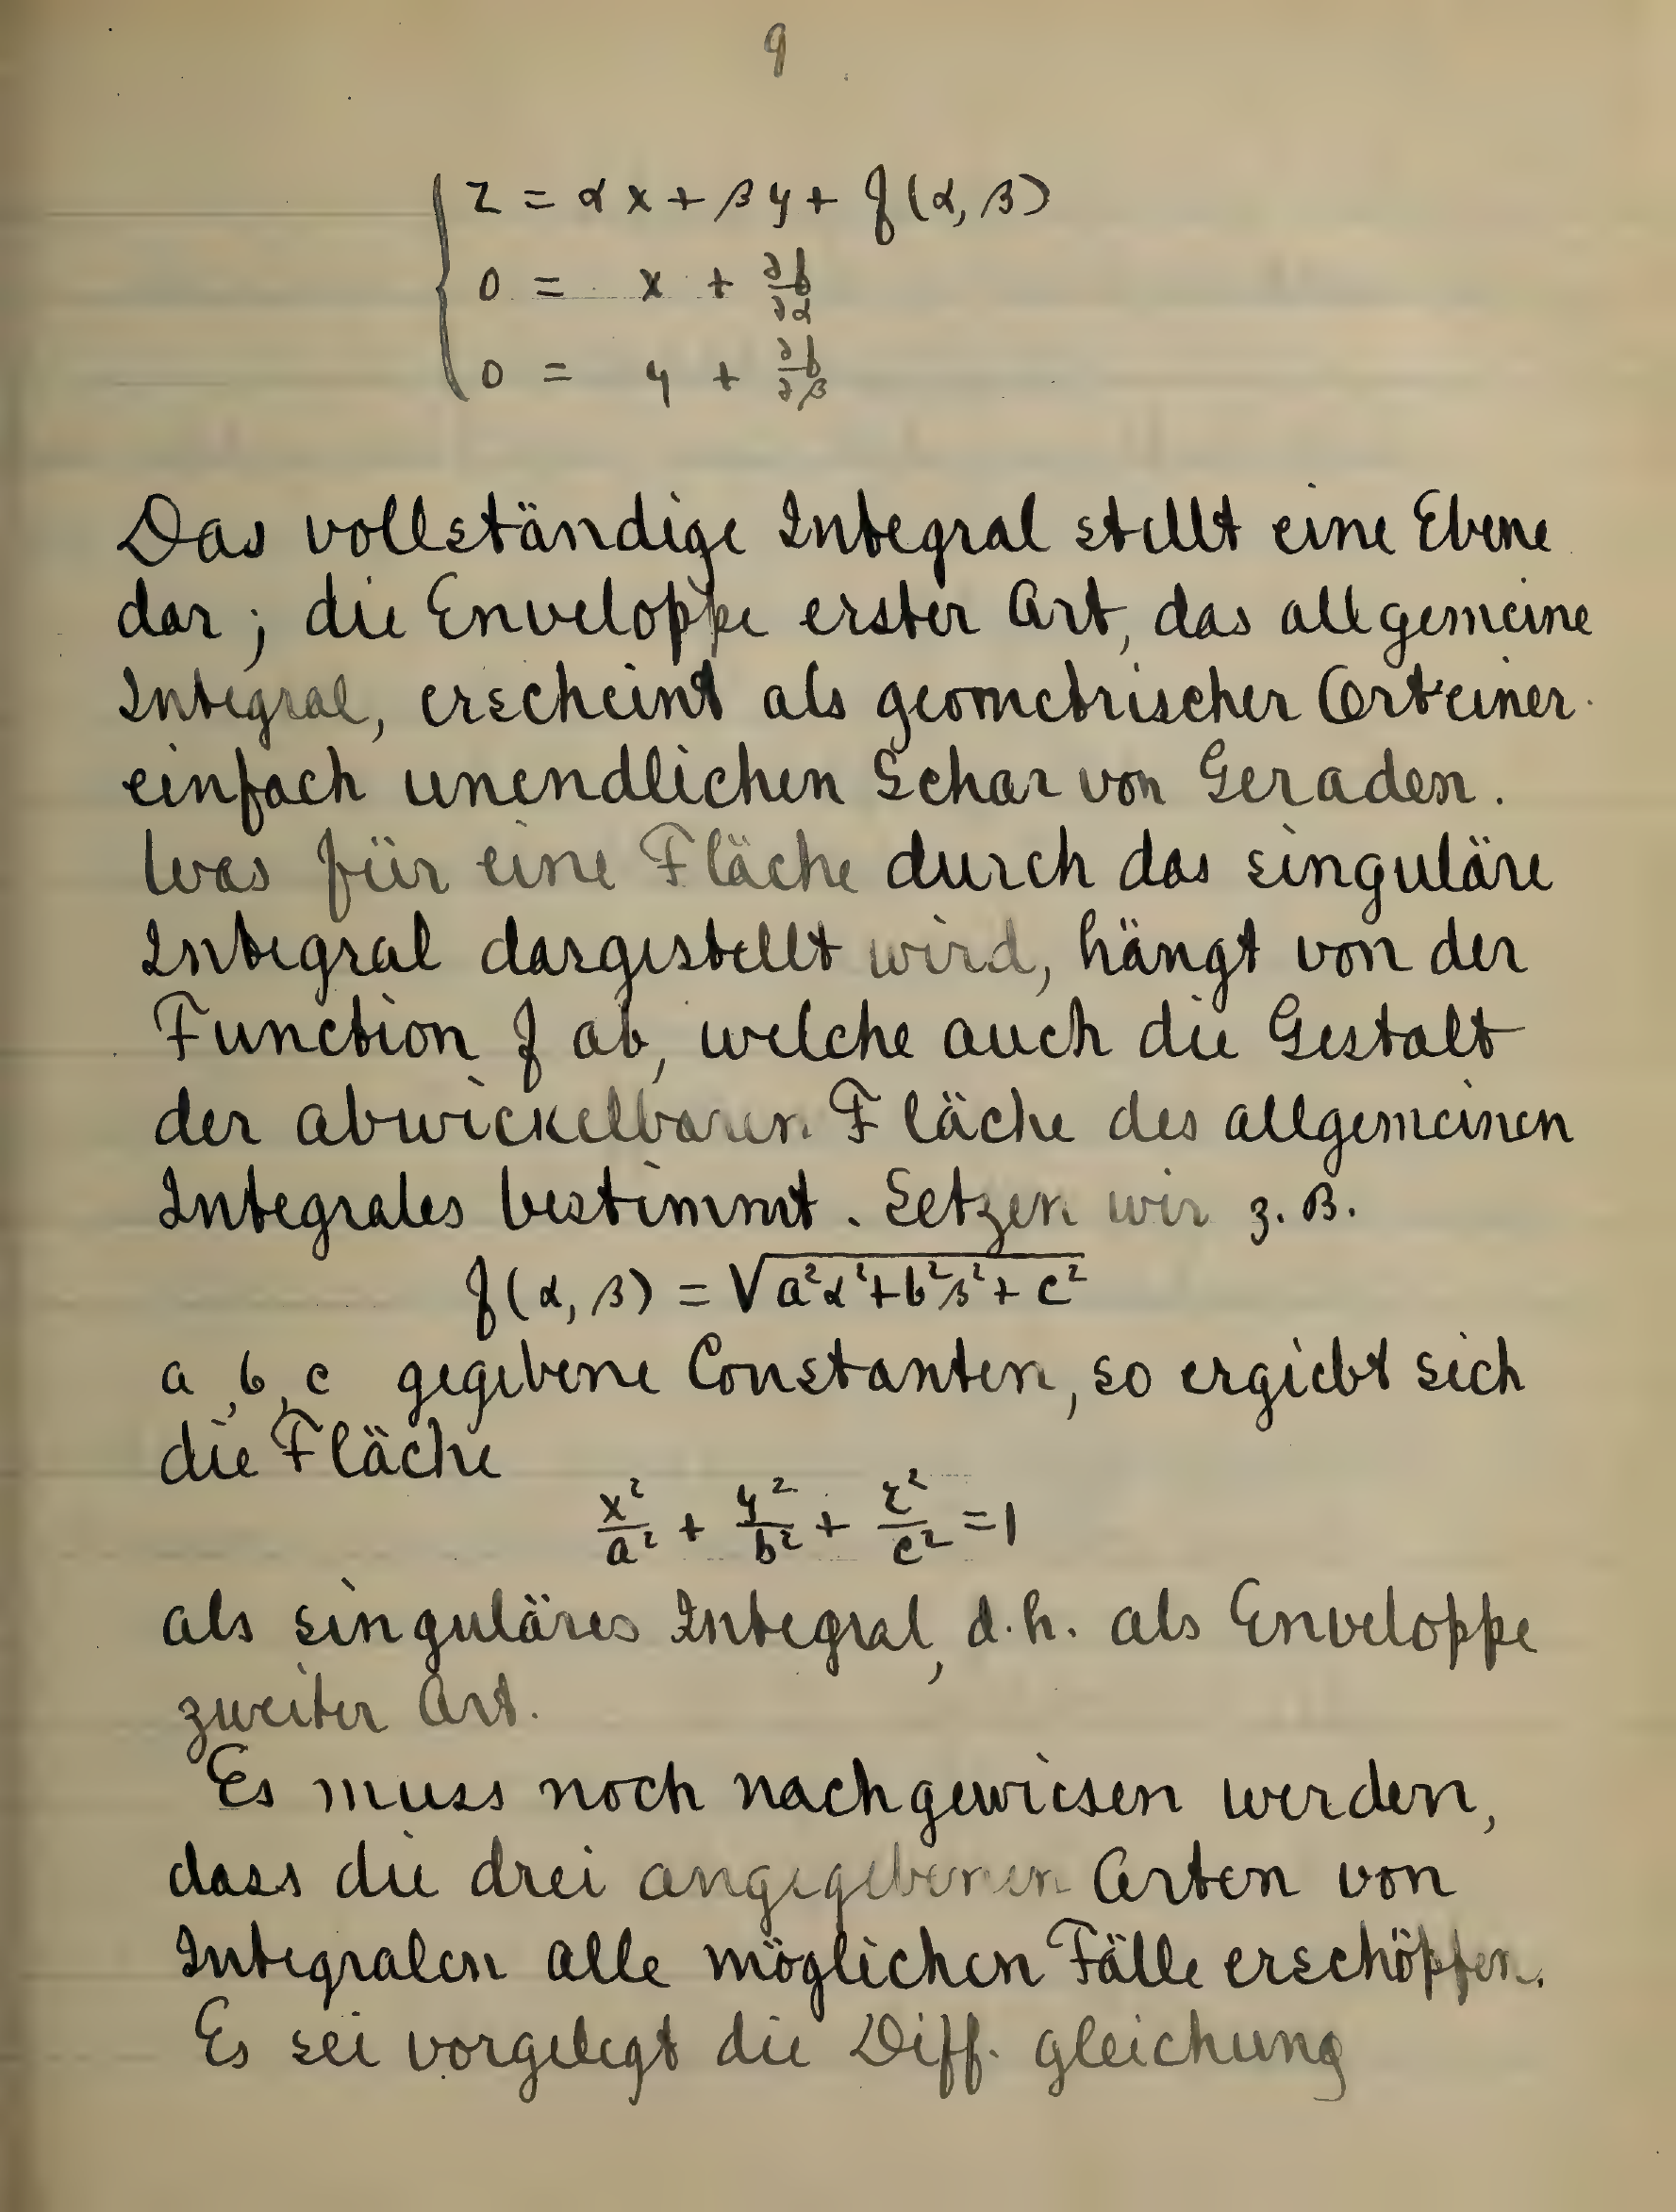 9
z = αx + βy + f(α, β)
0 = x + ∂f/∂α
0 = y + ∂f/∂β
Das vollständige Integral stellt eine Ebene
dar; die Enveloppe erster Art, das allgemeine
Integral, erscheint als geometrischer Ort einer
einfach unendlichen Schar von Geraden.
Was für eine Fläche durch das singuläre
Integral dargestellt wird, hängt von der
Function f ab, welche auch die Gestalt
der abwickelbaren Fläche des allgemeinen
Integrales bestimmt. Setzen wir z. B.
f(α, β) = √(a²α²+b²β²+c²)
a, b, c gegebene Constanten, so ergiebt sich
die Fläche
x²/a² + y²/b² + z²/c² = 1
als singuläres Integral, d.h. als Enveloppe
zweiter Art.
Es muss noch nachgewiesen werden,
dass die drei angegebenen Arten von
Integralen alle möglichen Fälle erschöpfen.
Es sei vorgelegt die Diff. gleichung